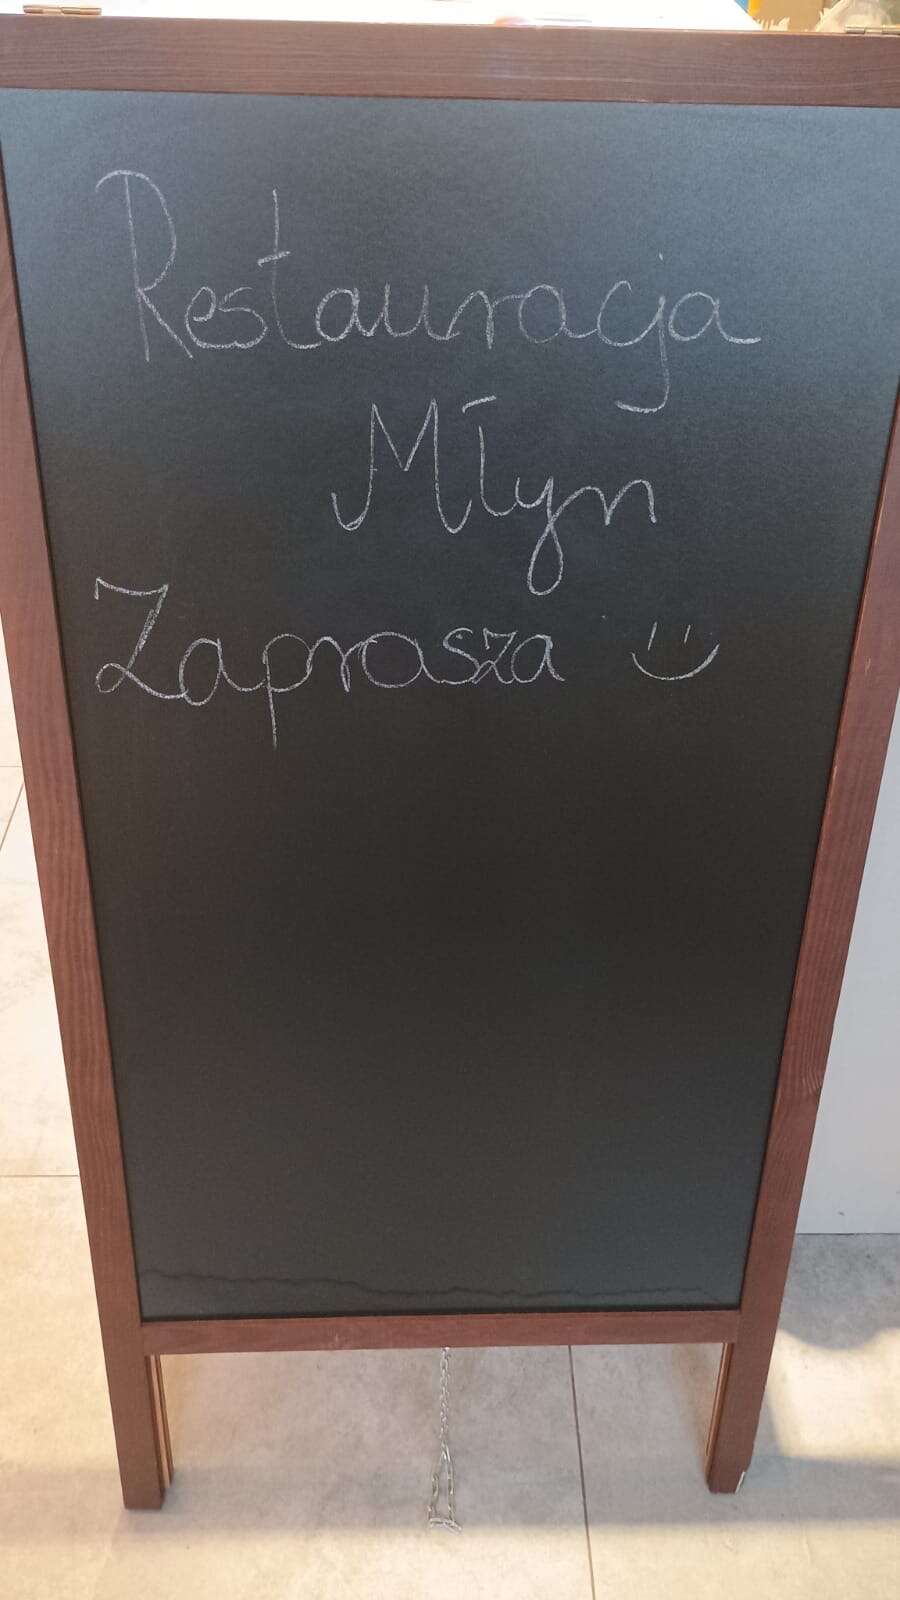 Restauracja
Młyn
Zaprasza :)